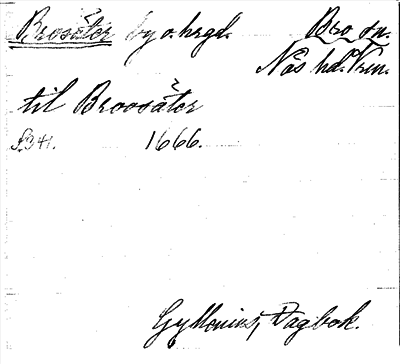 Brosäter by o. hrgd. Bro sn.
Näs hd. Vrm.
til Broosäter
s. 341. 1666.
Gyllenius, Dagbok.